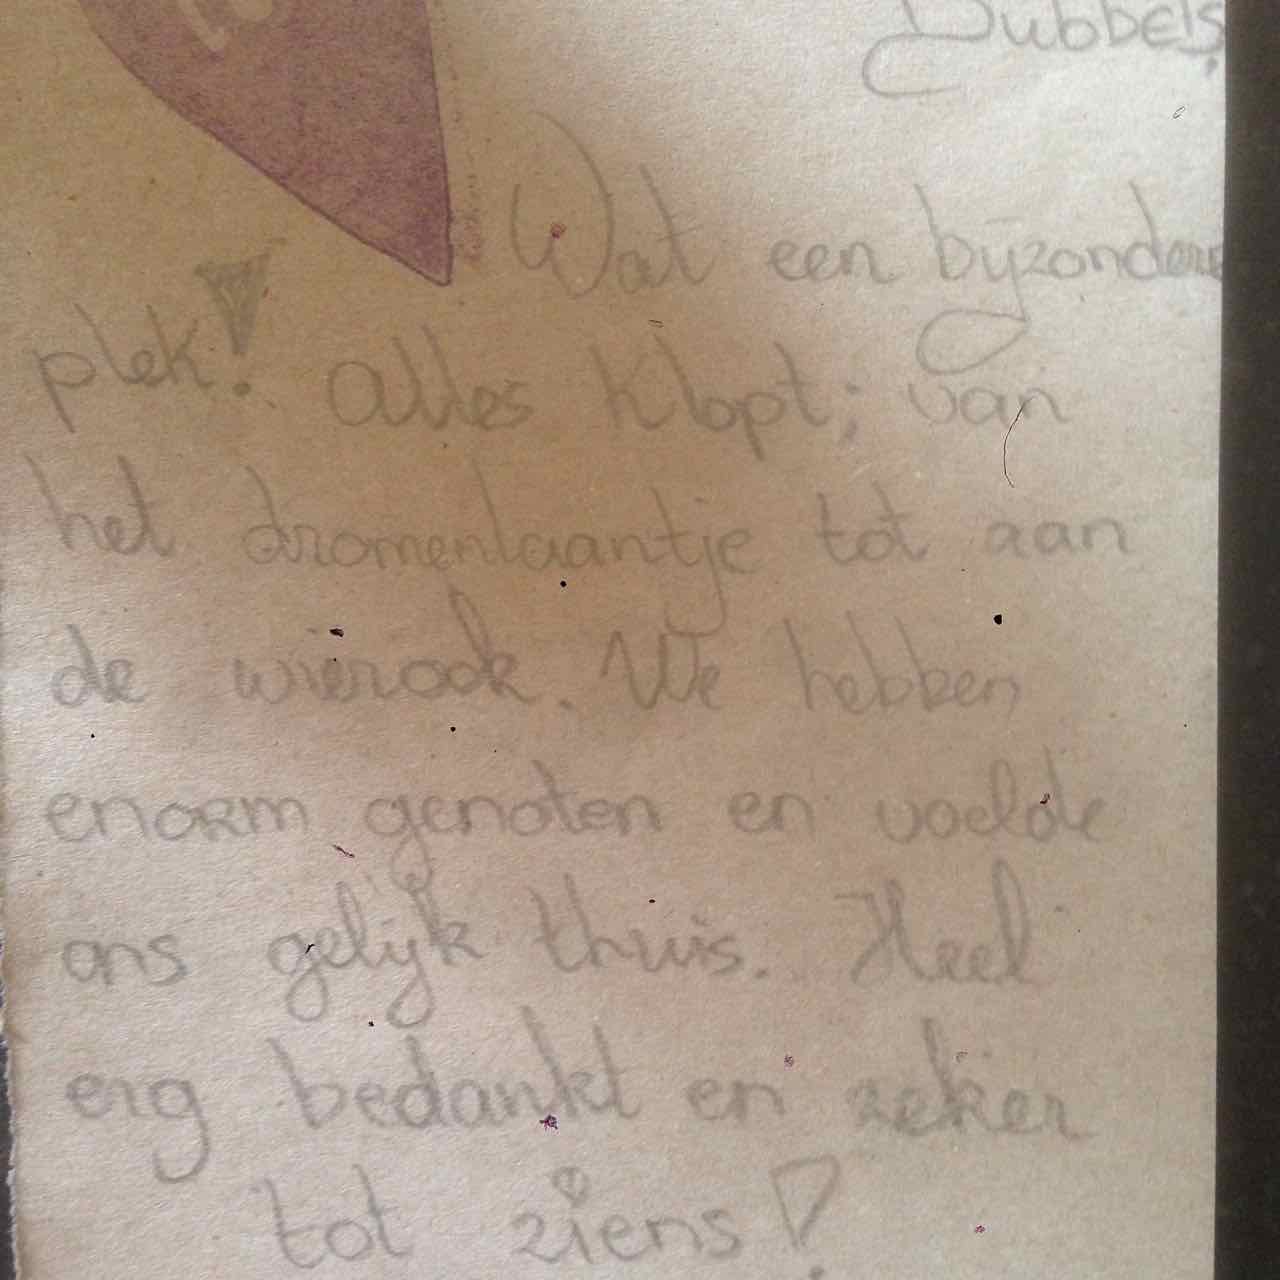 Dubbels,
Wat een bijzondere
plek! Alles klopt; van
het dromenlaantje tot aan
de wierook. We hebben
enorm genoten en voelde
ons gelijk thuis. Heel
erg bedankt en zeker
tot ziens!